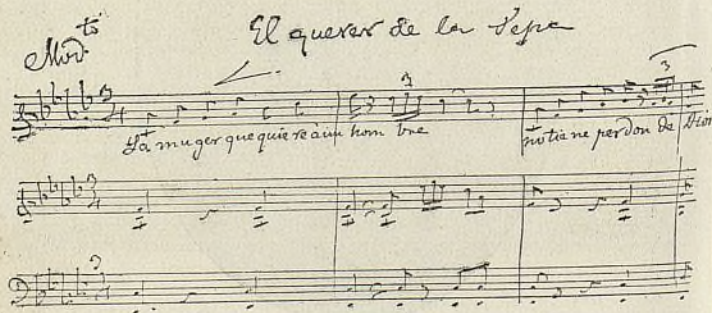 El querer de la Pepa
Mod.to
3
4
3
3
La muger que quiere à un hom bre
no tie ne perdon de Dios
3
4
3